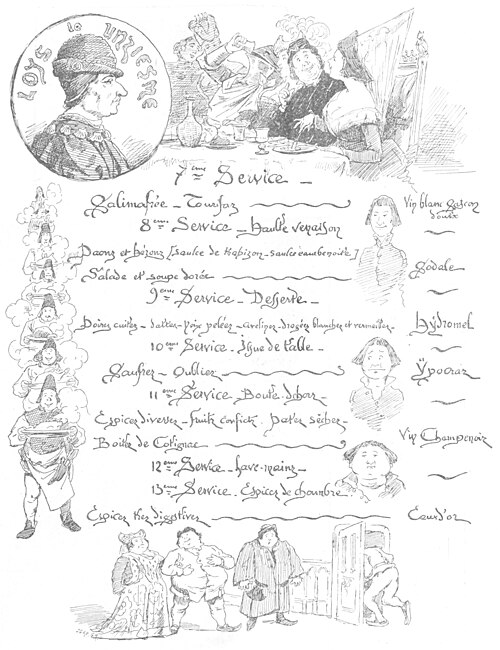 LOYS le UNZIESME
7eme Service -
Galimafrée - Tourifaz
Vin blanc gascon doulx
8eme Service - Haulte venaison
Paons et hérons [saulce de trapizon - saulce eaubenoiste]
Salade et soupe dorée
godale
9eme Service - Desserte -
Poires cuites - dattes - noix pelées - avelines - dragées blanches et vermeilles
Hydromel
10eme Service - Issue de table -
Gaufres - Oublies
Ypocras
11eme Service - Boute-dehors -
Espices diverses - fruits confictz - pastes sèches -
Vin Champenois
Boites de Cotignac
12eme Service - lave-mains -
13eme Service - Espices de chambre
Espices tres digestives
Eau d'or